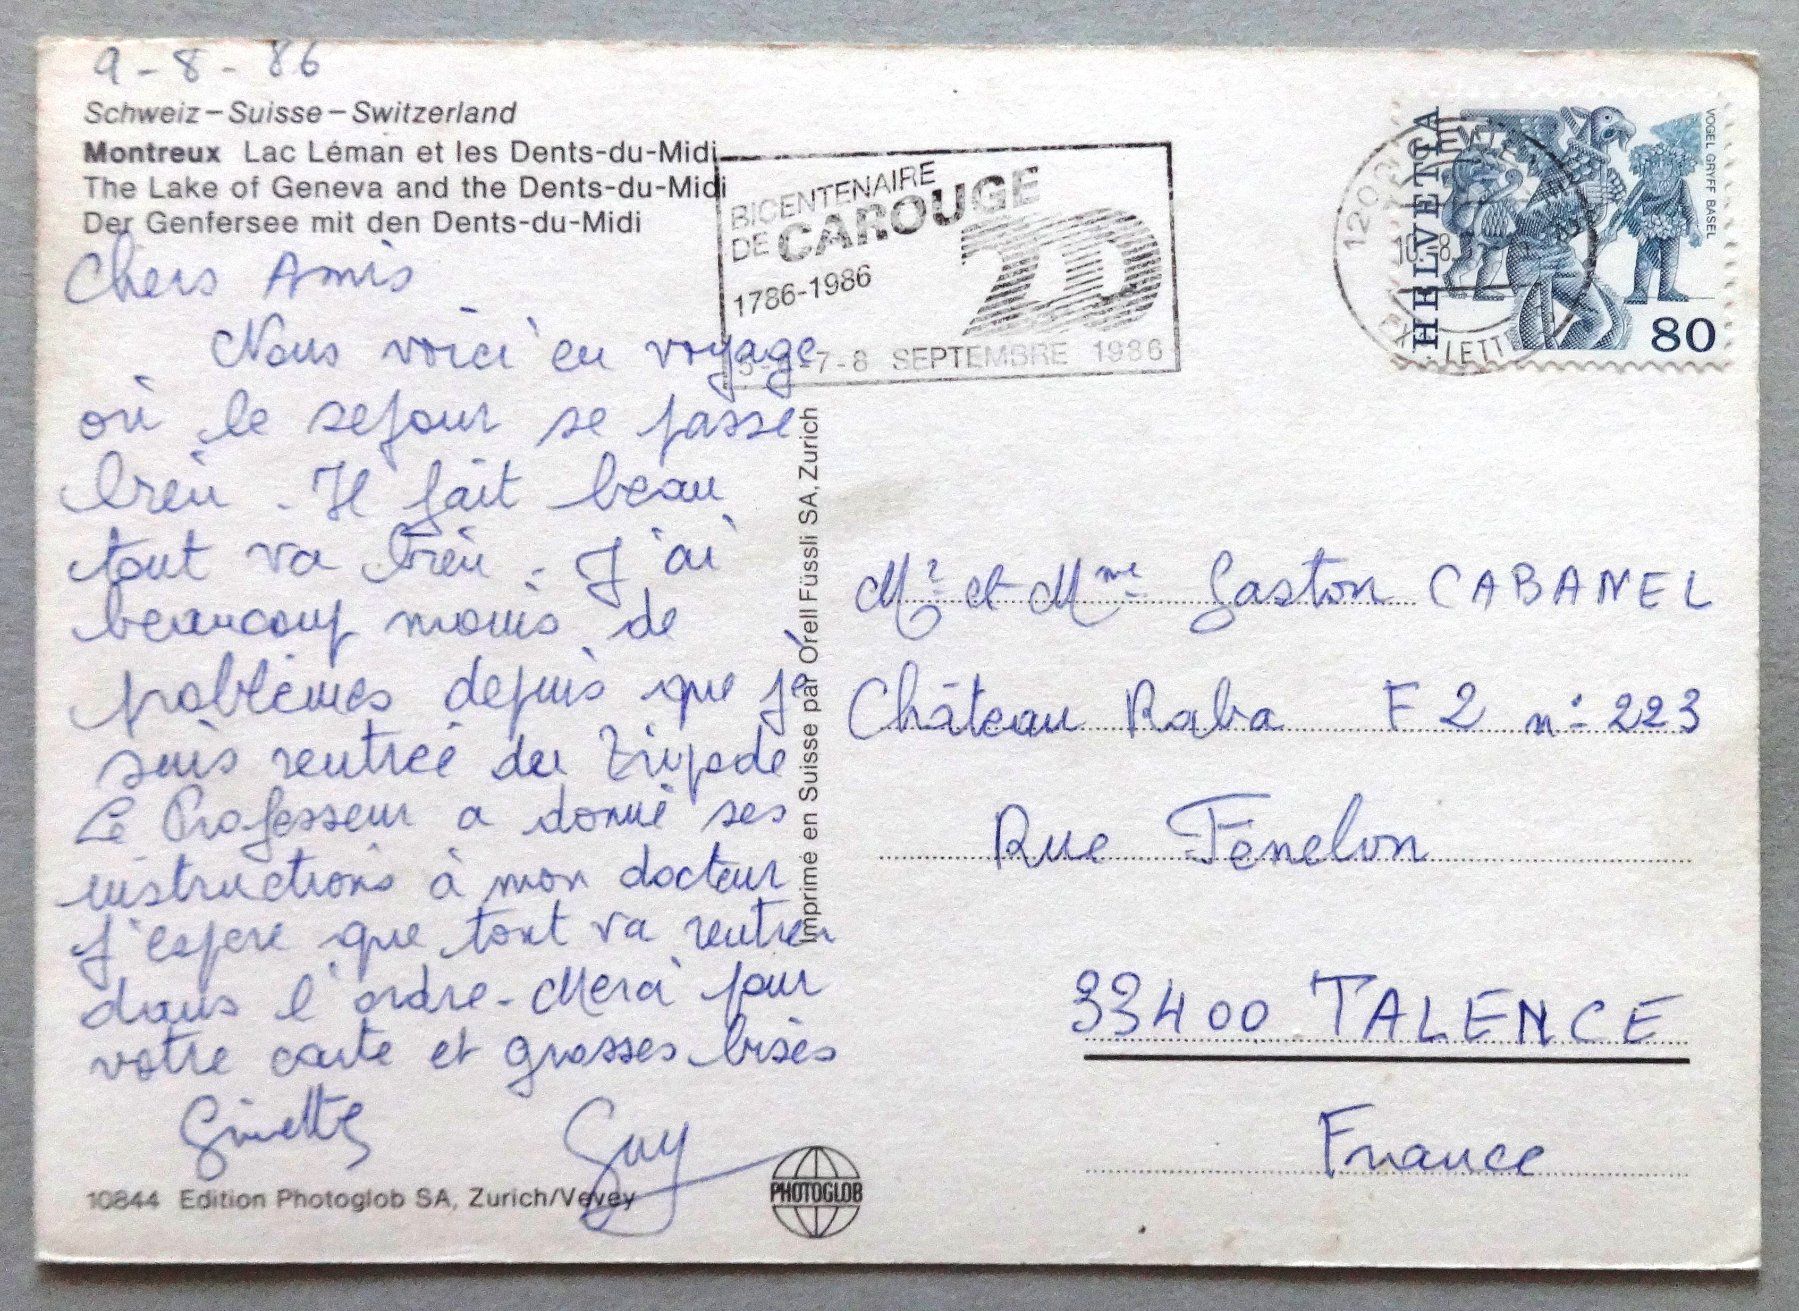 9-8-86
Schweiz – Suisse – Switzerland
Montreux Lac Léman et les Dents-du-Midi
The Lake of Geneva and the Dents-du-Midi
Der Genfersee mit den Dents-du-Midi
Chers Amis
Nous voici en voyage
où le sejour se passe
bien. Il fait beau
tout va bien. J'ai
beaucoup moins de
problèmes depuis que je
suis rentrée du Tripode
Le Professeur a donné ses
instructions à mon docteur
J'espere que tout va rentrer
dans l'ordre. Merci pour
votre carte et grosses bises
Ginette Guy
10844 Edition Photoglob SA, Zurich/Vevey
PHOTOGLOB
Imprimé en Suisse par Orell Füssli SA, Zurich
BICENTENAIRE
DE CAROUGE
1786-1986
200
5-6-7-8 SEPTEMBRE 1986
1200
10.-8.
EXP. LETT
HELVETIA
VOGEL GRYFF BASEL
80
Mr et Mme Gaston CABANEL
Château Raba F2 n° 223
Rue Fénelon
33400 TALENCE
France